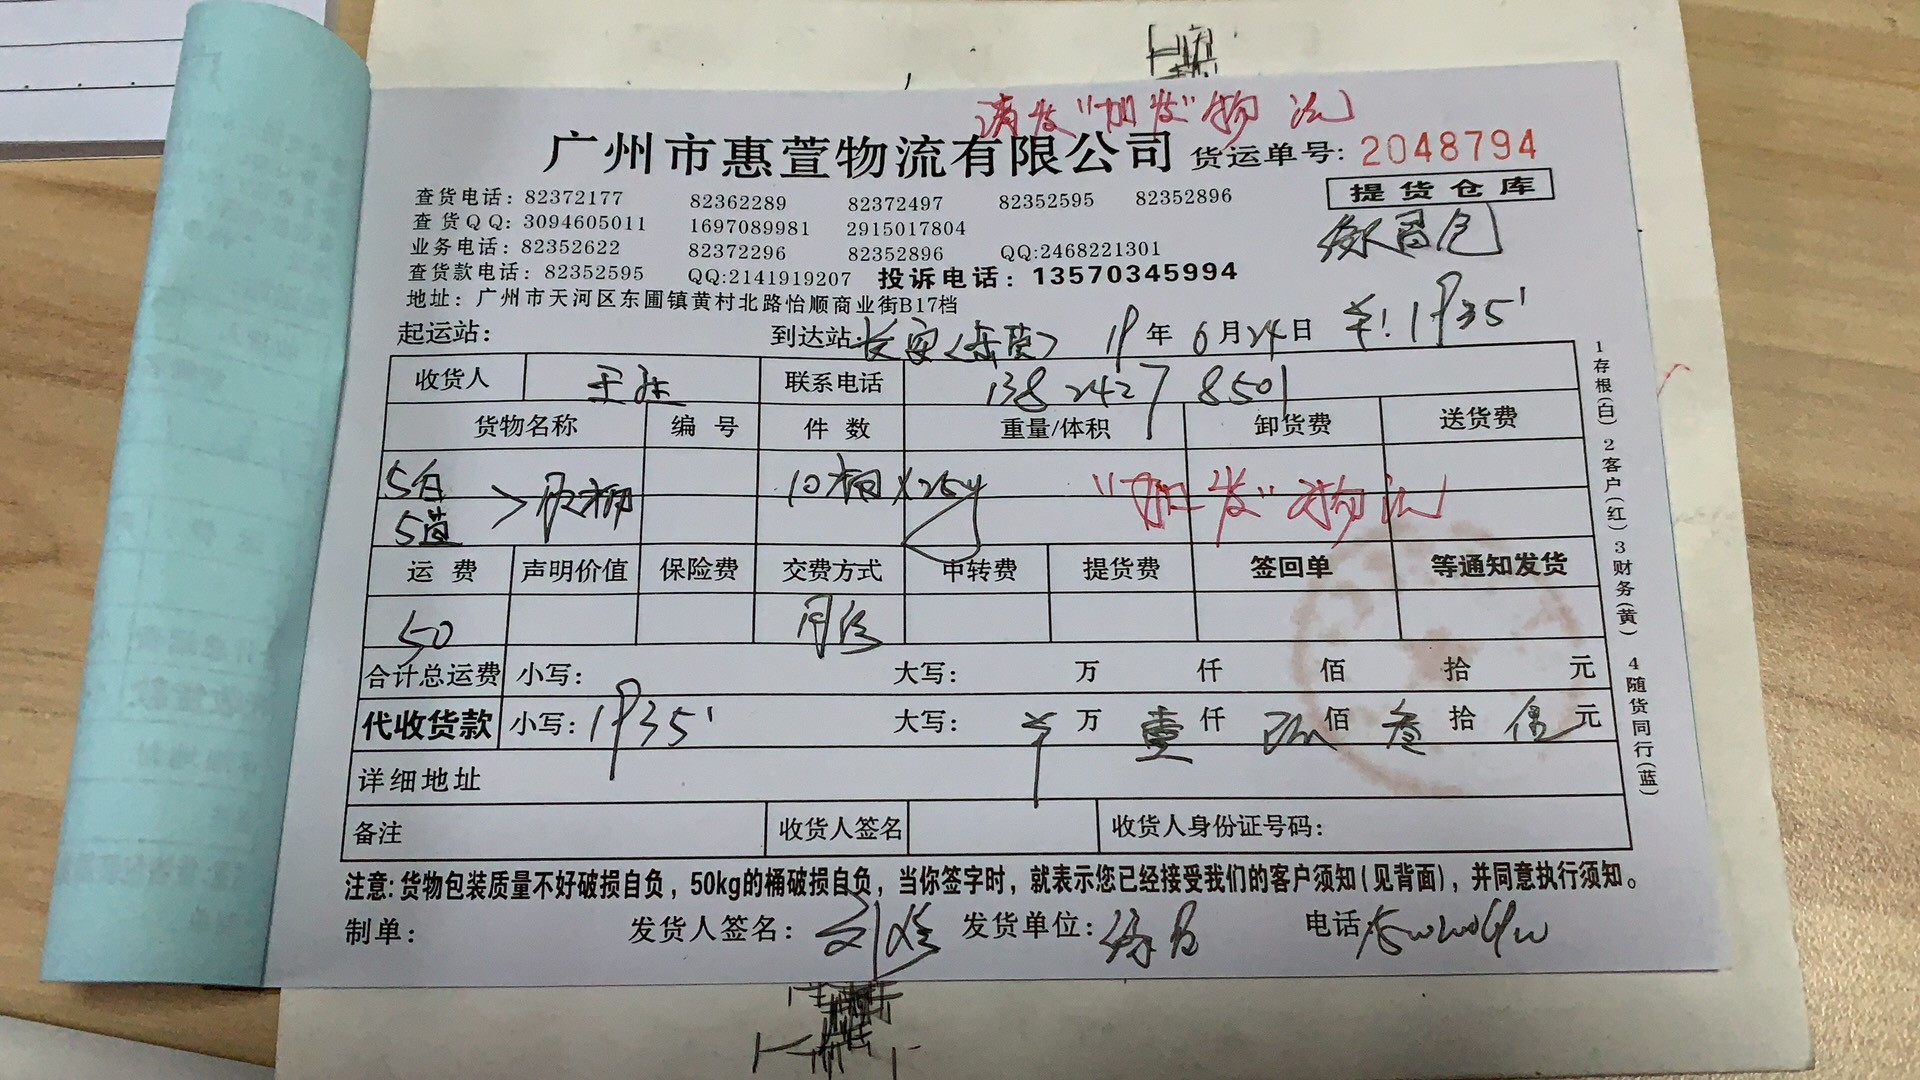 请发“加发”物流
广州市惠萱物流有限公司 货运单号: 2048794
提货仓库
查货电话: 82372177 82362289 82372497 82352595 82352896
查货QQ: 3094605011 1697089981 2915017804
业务电话: 82352622 82372296 82352896 QQ:2468221301
查货款电话: 82352595 QQ:2141919207 投诉电话: 13570345994
地址: 广州市天河区东圃镇黄村北路怡顺商业街B17档
起运站: 到达站 长安(东莞) 19年6月24日 ¥:1935'
收货人 联系电话 138 2427 8501
货物名称 编号 件数 重量/体积 卸货费 送货费
5白 10桶×25 “加发”物流
5蓝
运费 声明价值 保险费 交费方式 中转费 提货费 签回单 等通知发货
50
合计总运费 小写: 大写: 万 仟 佰 拾 元
代收货款 小写: 1935' 大写: ¥ 万 壹 仟 玖 佰 叁 拾 伍 元
详细地址
备注 收货人签名 收货人身份证号码:
注意: 货物包装质量不好破损自负, 50kg的桶破损自负, 当你签字时, 就表示您已经接受我们的客户须知(见背面), 并同意执行须知。
制单: 发货人签名: 发货单位: 电话
1存根(白) 2客户(红) 3财务(黄) 4随货同行(蓝)